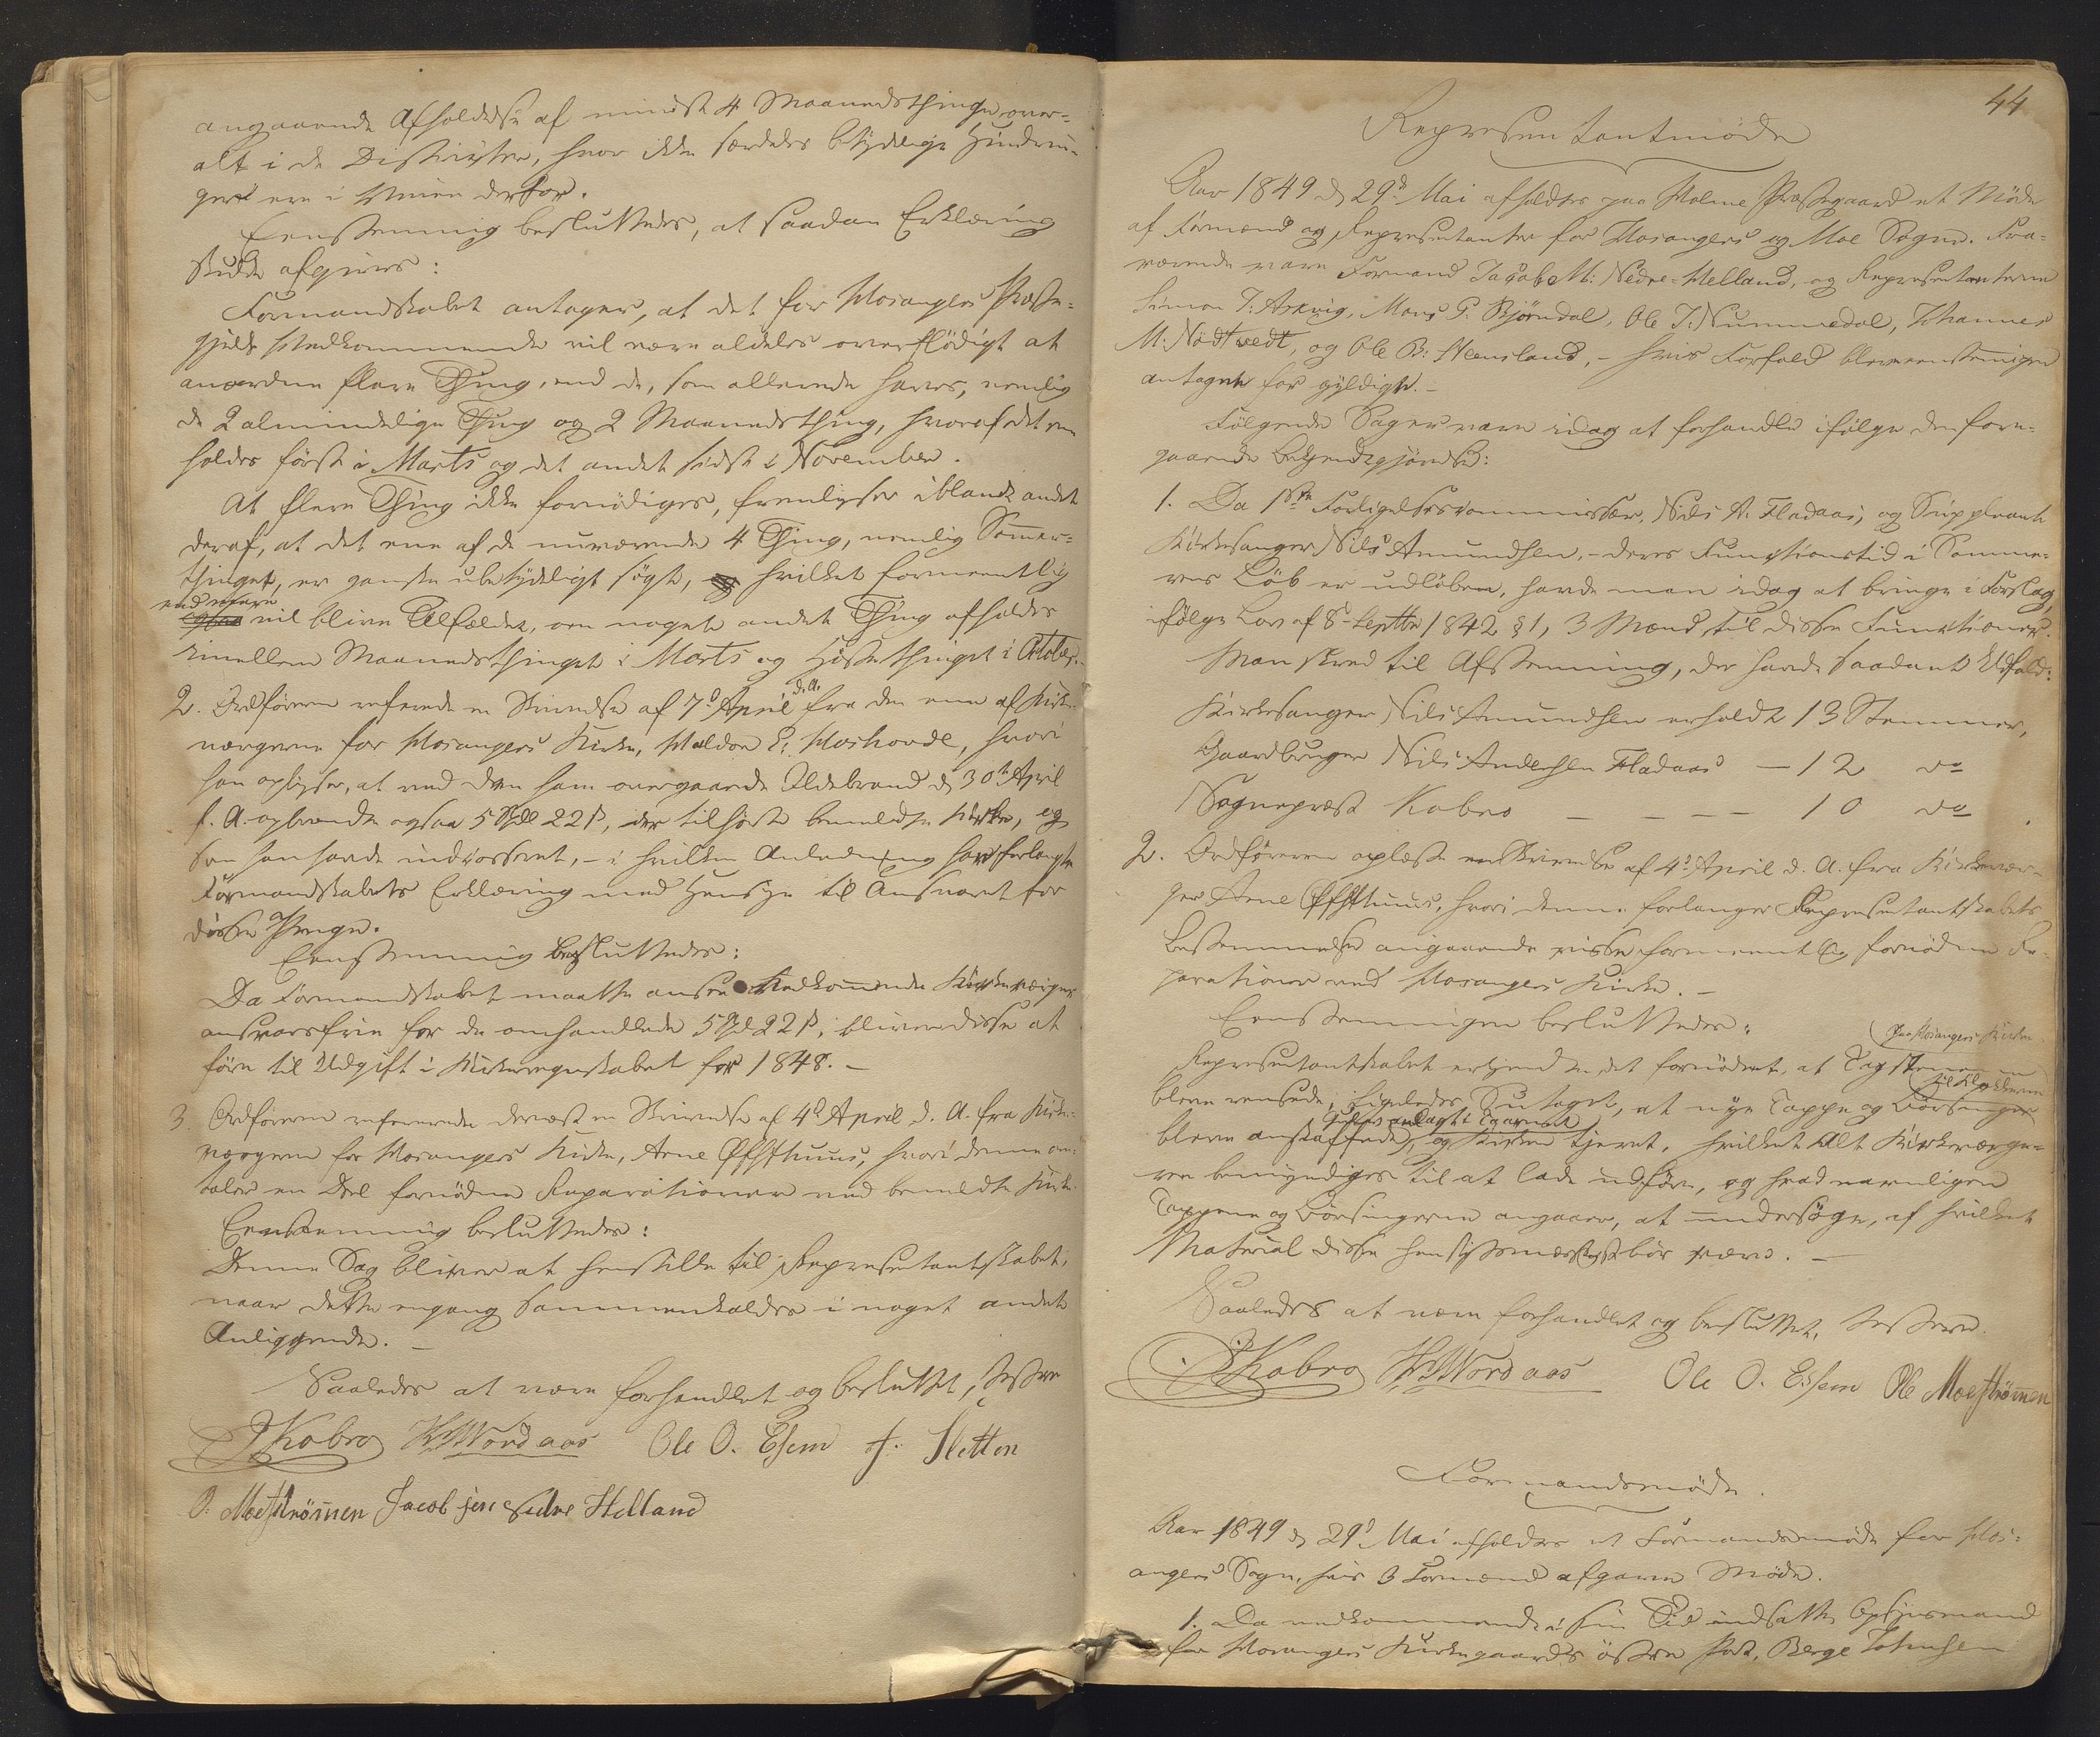 angaaende Afholdelse af mindst 4 Maanedsthinge over-
alt i de Distrikter, hvor ikke særdeles betydelige Hindrin-
ger ere i Veien derfor.
Eenstemmig besluttedes, at saadan Erklæring
skulde afgives:
Formandskabet antager, at det for Hosangers Præste-
gjelds Vedkommende vil være aldeles overflødigt at
anordne flere Thing, end de, som allerede haves, nemlig
de 2 almindelige Thing og 2 Maanedsthing, hvoraf det ene
holdes først i Marts og det andet sidst i November.
At flere Thing ikke fornødiges, fremlyser iblandt andet
deraf, at det ene af de nuværende 4 Thing, nemlig Sommer-
thinget, er ganske ubetydeligt søgt, hvilket formeentlig
end mere vil blive Tilfældet, om noget andet Thing afholdes
imellem Maanedsthinget i Marts og Høstethinget i October.
2. Ordføreren refererede en Skrivelse af 7d April d. A. fra den ene af Kirke-
værgerne for Hosangers Kirke, Haldor E. Hoshovde, hvori
han oplyser, at ved den ham overgaaede Ildebrand d. 30te April
f. A. opbrændte ogsaa 5 Spdl 22 ß, der tilhørte bemeldte Kirke, og
som han havde indcasseret, - i hvilken Anledning han forlangte
Formandskabets Erklæring med Hensyn til Ansvaret for
disse Penge.
Eenstemmig besluttedes:
Da Formandskabet maatte ansee Vedkommende Kirkeværger
ansvarsfrie for de omhandlede 5 Spd 22 ß, bliver disse at
føre til Udgift i Kirkeregnskabet for 1848. -
3. Ordføreren refererede dernæst en Skrivelse af 4d April d. A. fra Kirke-
værgeren for Hosangers Kirke, Arne Øfsthuus, hvori denne om-
taler en Deel fornødne Reparationer ved bemeldte Kirke.
Eenstemmig besluttedes:
Denne Sag bliver at henstille til Repræsentantskabet,
naar dette engang sammenkaldes i noget andet
Anliggende. -
Saaledes at være forhandlet og besluttet, testere
Kobro H. Nordaas Ole O. Eisem J. Sletten
O. Moeströmmen Jacob jen Nedre Helland
44
Repræsentantmøde
Aar 1849 d. 29d Mai afholdtes paa Holme Præstegaard et Møde
af Formænd og Repræsentanter for Hosangers og Moe Sogne. Fra-
værende vare Formand Jacob M. Nedre-Helland, og Repræsentanterne
Simon J. Askvig, Mons P. Bjørndal, Ole J. Nummedal, Johannes
M. Nödtvedt, og Ole B. Heensland, - hvis Forfald bleve eenstemmigen
antagne for gyldige. -
Følgende Sager vare idag at forhandle ifølge den fore-
gaaende Bekjendtgjørelse:
1. Da 1ste Forligelsescommissær, Nils A. Fladaas, og Suppleant
Kirkesanger Nils Amundsen, - deres Functionstid i Somme-
rens Løb er udløben, havde man idag at bringe i Forslag,
ifølge Lov af 8 Septbr 1842 § 1, 3 Mænd til disse Functioner.
Man skred til Afstemning, der havde saadant Udfald:
Kirkesanger Nils Amundsen erholdt 13 Stemmer,
Gaardbruger Nils Andersen Fladaas - 12 do
Sognepræst Kobro - - - - 10 do
2. Ordføreren oplæste en Skrivelse af 4d April d. A. fra Kirkevær-
ger Arne Øfsthuus, hvori denne forlanger Repræsentantskabets
Bestemmelse angaaende visse formeentlig fornødne Re-
parationer ved Hosangers Kirke. -
Eenstemmigen besluttedes:
(paa Hosangers Kirke
Repræsentantskabet erkjendte det fornødent, at Tagstenene
til Klokkerne
bleve rensede, ligeledes, at nye Tappe og Børsinger
bleve anskaffede, og Kirken tjæret, hvilket Alt Kirkeværge-
ren bemyndiges til at lade udføre, og hvad navnligen
Tappene og Børsingerne angaaer, at undersøge, af hvilket
Material disse hensigtsmæssigst bør være. -
Saaledes at være forhandlet og besluttet, testere
Kobro H. Nordaas Ole O. Eisem Ole Moeströmmen
Formandsmøde.
Aar 1849 d. 29d Mai afholdtes et Formandsmøde for Hos-
angers Sogn, hvis 3 Formænd afgave Møde.
1. Da vedkommende i sin Tid indsatte Opsynsmand
for Hosangers Kirkegaards østre Part, Berge Johnsen